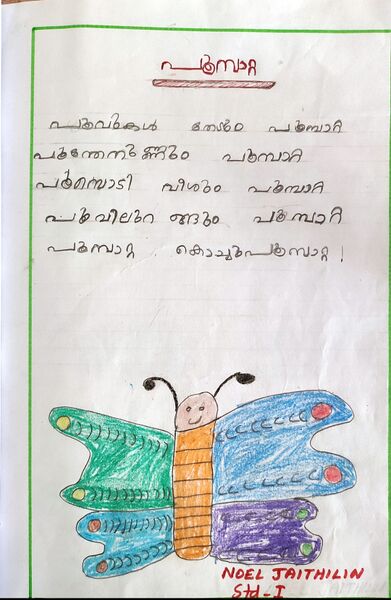 പൂമ്പാറ്റ
പൂവുകൾ തേടും പൂമ്പാറ്റ
പൂന്തേനുണ്ണും പൂമ്പാറ്റ
പൂമ്പൊടി വീശും പൂമ്പാറ്റ
പൂവിലുറങ്ങും പൂമ്പാറ്റ
പൂമ്പാറ്റ കൊച്ചുപൂമ്പാറ്റ !
NOEL JAITHILIN
Std-I